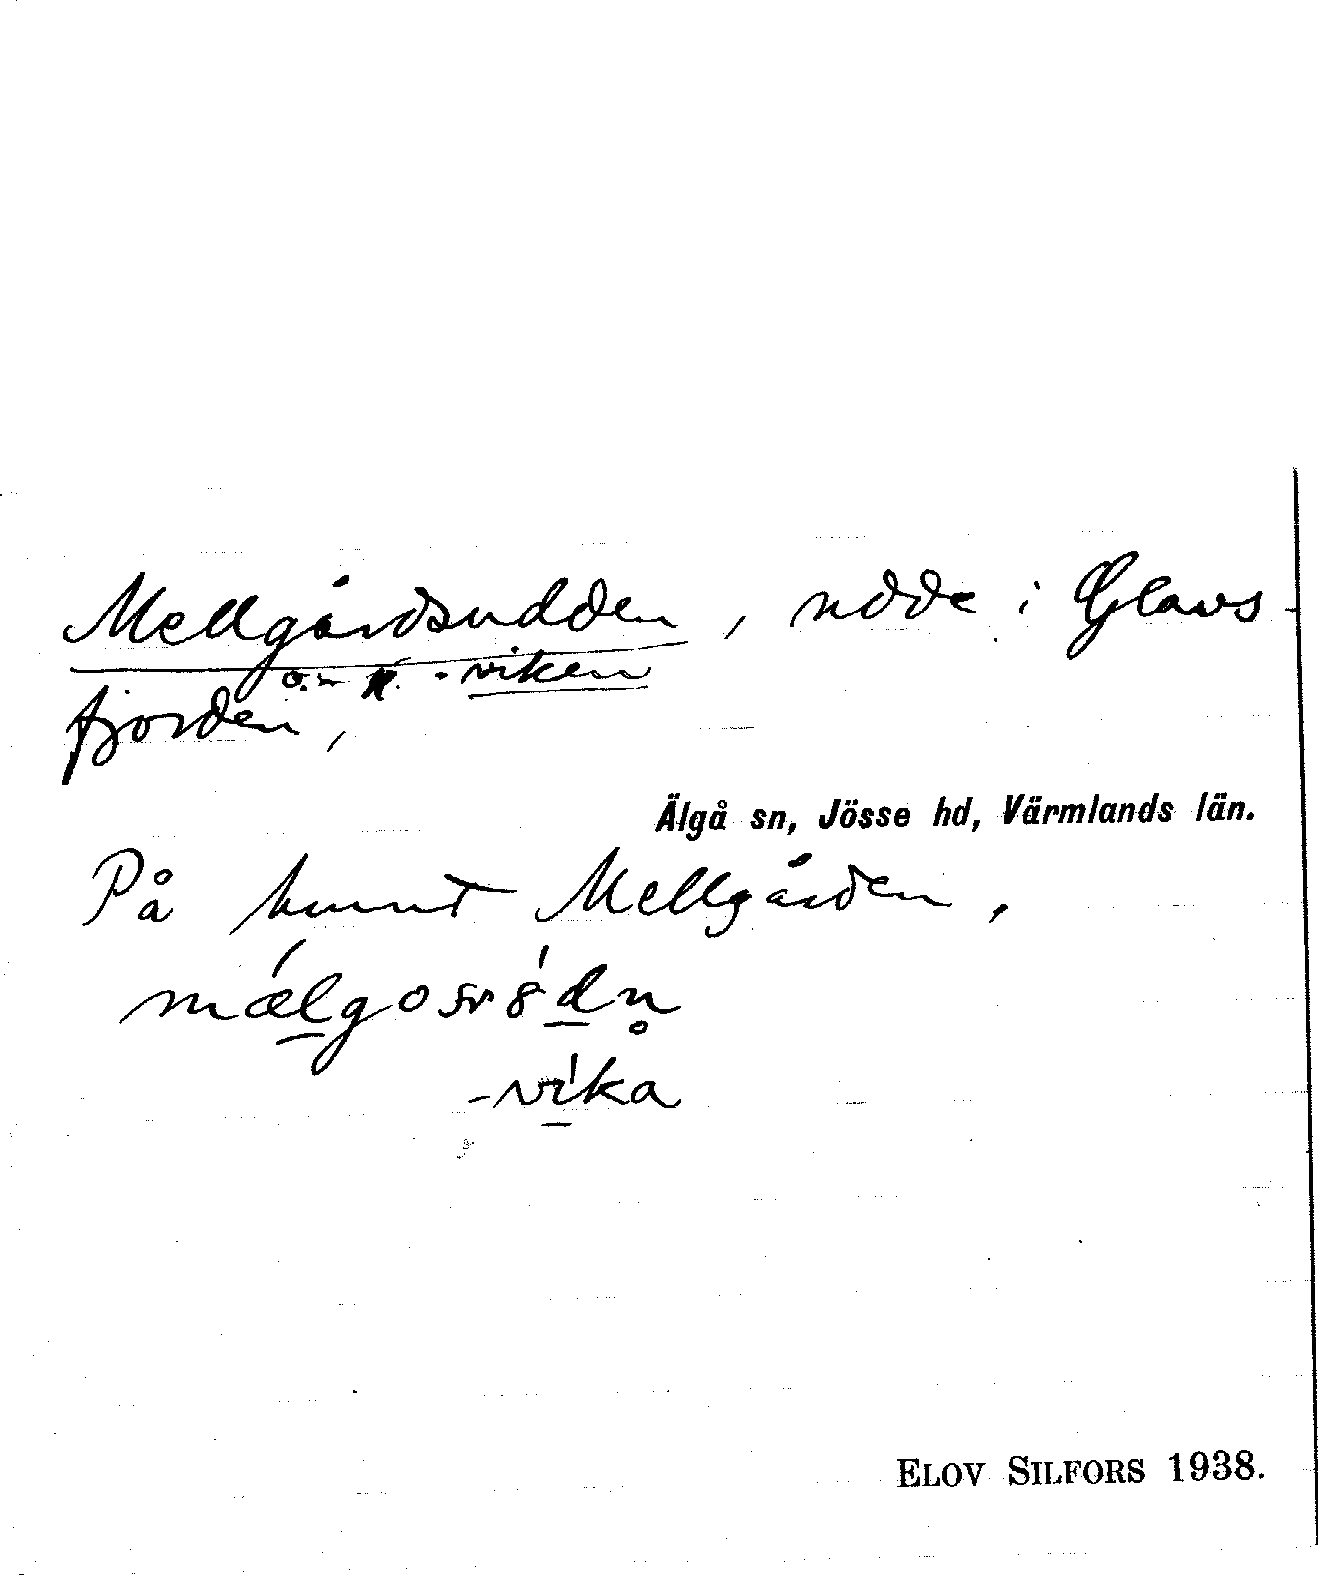 Mellgårdsudden, udde i Glavs-
-viken
fjorden,
Älgå sn, Jösse hd, Värmlands län.
På hmnt Mellgården,
-vika
ELOV SILFORS 1938.